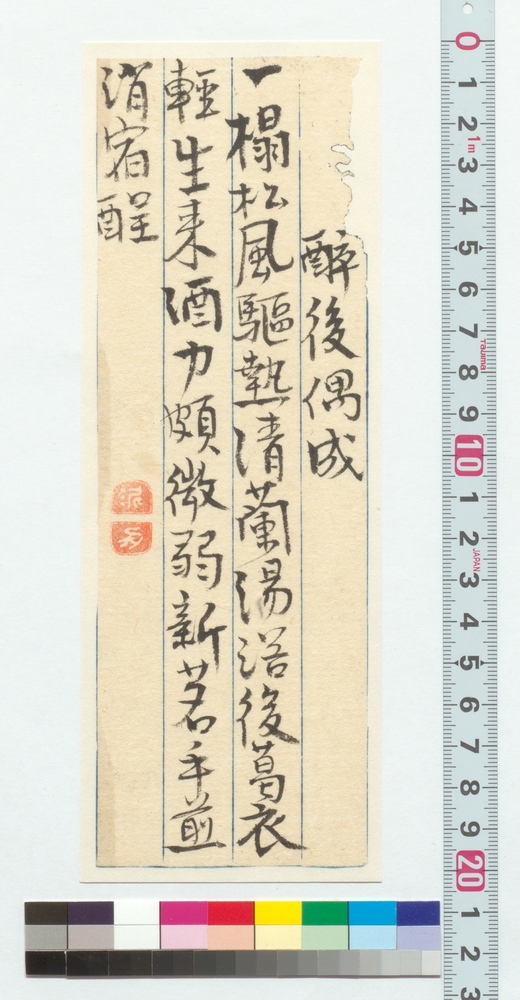 醉後偶成
一榻松風驅熱清蘭湯浴後葛衣
輕生来酒力頗微弱新茗手煎
消宿酲
0
1
2
1m
3
4
5
6
7
Tajima
8
9
10
1
2
JAPAN
3
4
5
6
7
8
9
20
1
2
3